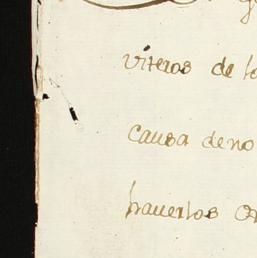 viteros de lo
causa de no
hauerlos